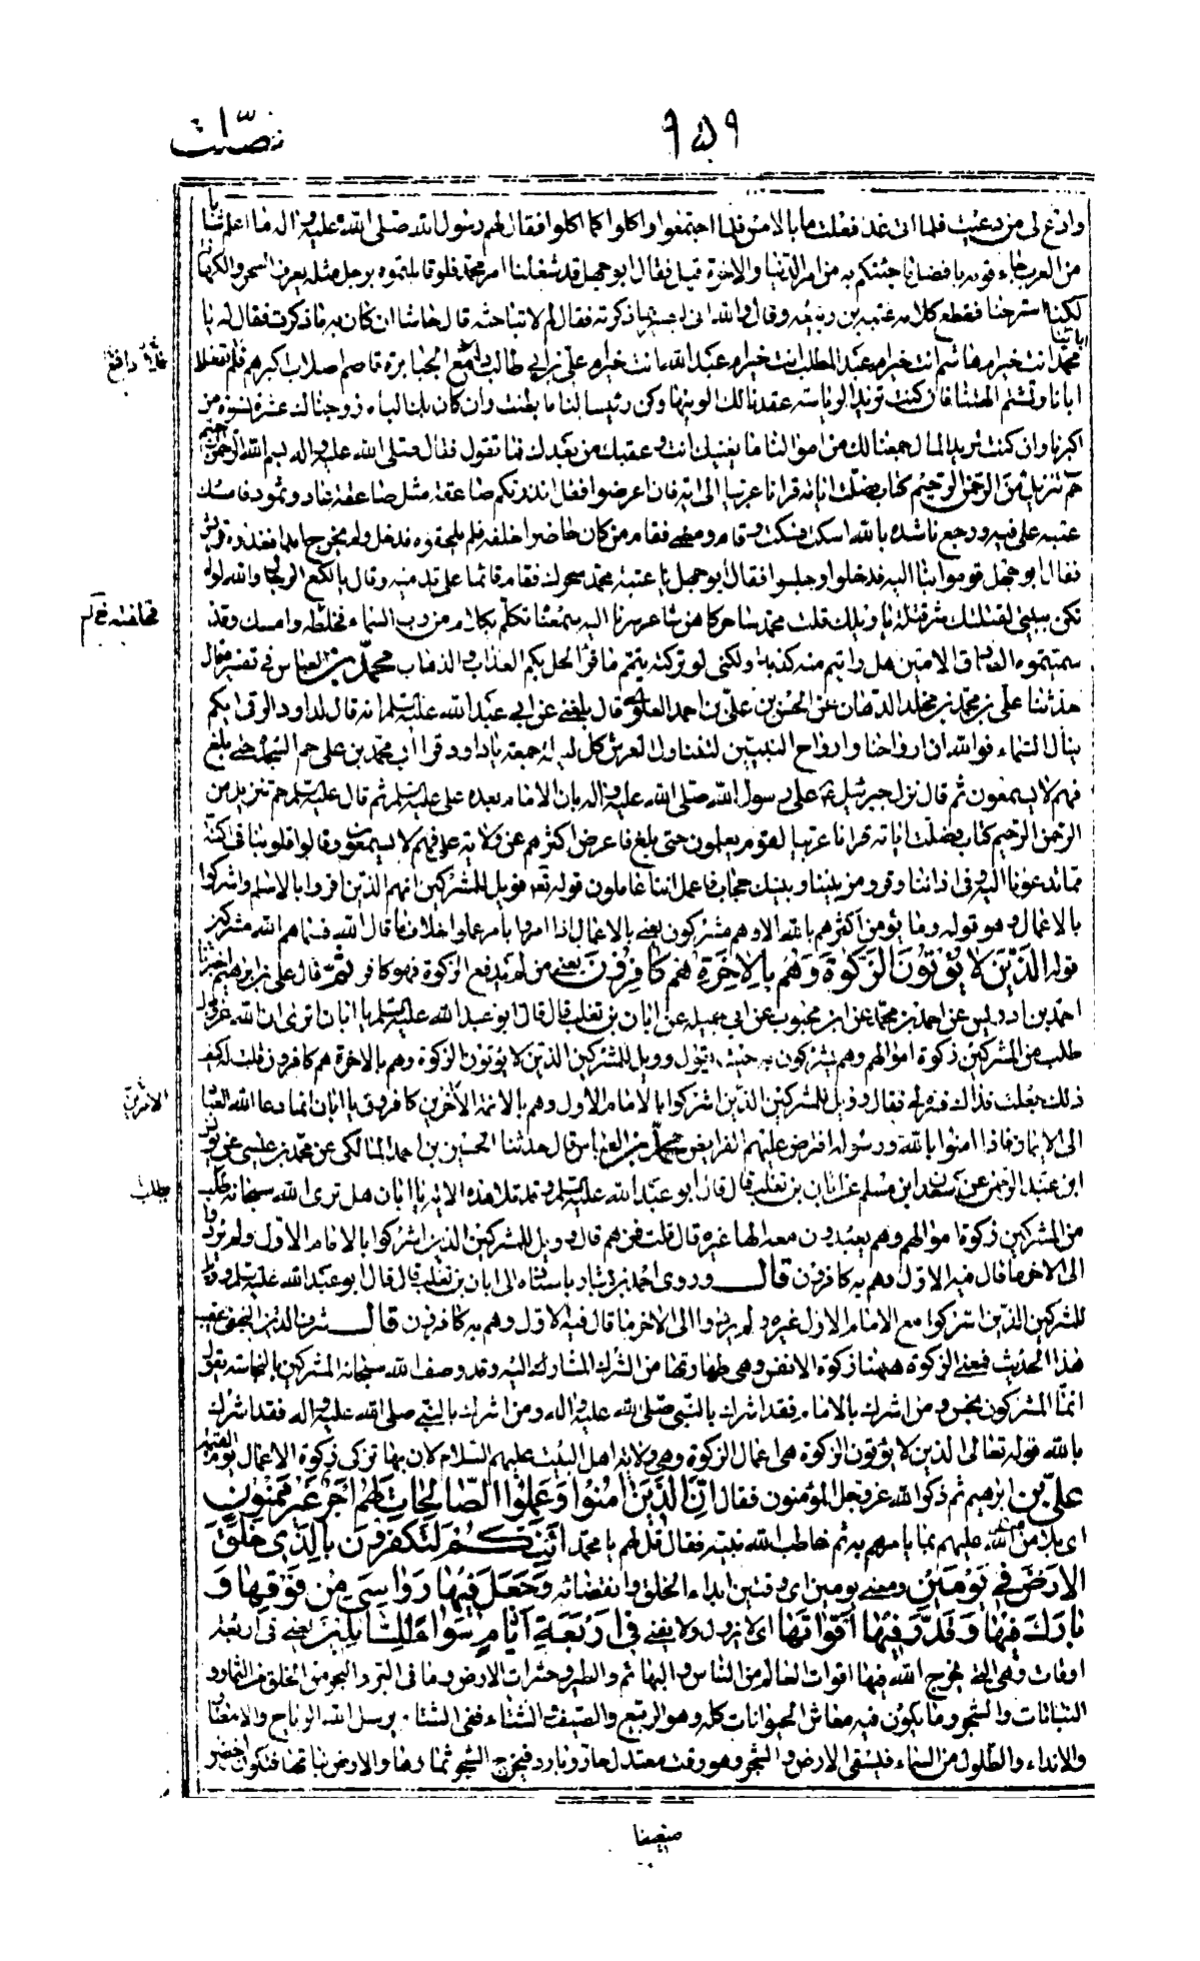 فصّلت
٩٥٩
وادع لی من دعیت فلما اتی غد فعلت ما بالامس فلما اجتمعوا واکلوا کما اکلوا فقال لهم رسول الله صلی الله علیه واله ما اعلم شابا
من العرب جاء قومه بافضل ما جئتکم به من امر الدنیا والاخرة قیل فقال ابو جهل قد شغلنا امر محمد فلو قابلتموه برجل مثله یعرف السحر والکهانة
لکنا استرحنا فقطع کلامه عتبة بن ربیعة وقال والله انی لبصیر بما ذکرته فقال لم لا تباحثه قال حاشا ان کان به ما ذکرت فقال له یا
محمد انت خیر ام هاشم انت خیر ام عبد المطلب انت خیر ام عبد الله انت خیر ام علی بن ابی طالب دامغ الجبابرة قاصم اصلاب اکبرهم فلم تضلل
ابائنا وتشتم الهتنا فان کنت ترید الریاسة عقدنا لک الویتها وکن رئیسا لنا ما بقیت وان کان بک الباه زوجناک عشرة نسوة من
اکبرنا وان کنت ترید المال جمعنا لک من اموالنا ما یغنیک انت وعقبک من بعدک فما تقول فقال صلی الله علیه واله بسم الله الرحمن الرحیم
حم تنزیل من الرحمن الرحیم کتاب فصلت ایاته قرانا عربیا الی ایة فان اعرضوا فقل انذرتکم صاعقة مثل صاعقة عاد وثمود فامسک
عتبة علی فیه ورجع ناشده بالله اسکت فسکت وقام ومضی فقام من کان حاضرا خلفه فلم یلحقوه فدخل ولم یخرج ابدا فغدوه قریش
فقال ابو جهل قوموا بنا الیه فدخلوا وجلسوا فقال ابو جهل یا عتبة محمد سحرک فقام قائما علی قدمیه وقال یا لکع الرجال والله لو لم
تکن ببیتی لقتلتک شر قتلة یا ویلک قلت محمد ساحر کاهن شاعر سرنا الیه سمعناه تکلم بکلام من رب السماء فحلفته وامسک وقد
سمیتموه الصادق الامین هل رایتم منه کذبة ولکنی لو ترکته یتمم ما قرأ لحل بکم العذاب والذهاب محمّد بن العباس فی تفسیره قال
حدثنا علی بن محمد بن مخلد الدهان عن الحسن بن علی بن احمد العلوی قال بلغنی عن ابی عبد الله علیه السلم انه قال لداود الرقی ایکم
ینال السماء فوالله ان ارواحنا وارواح النبیین لتناول العرش کل لیلة جمعة یا داود قرأ ابی محمد بن علی حم السجدة حتی بلغ
فهم لا یسمعون ثم قال نزل جبرئیل ع علی رسول الله صلی الله علیه واله بان الامام بعده علی علیه السلم ثم قال علیه السلم حم تنزیل من
الرحمن الرحیم کتاب فصلت ایاته قرانا عربیا لقوم یعلمون حتی بلغ فاعرض اکثرهم عن ولایة علی فهم لا یسمعون وقالوا قلوبنا فی اکنة
مما تدعونا الیه وفی اذاننا وقر ومن بیننا وبینک حجاب فاعمل اننا عاملون قوله تعالی فویل للمشرکین انهم الذین اقروا بالاسلام واشرکوا
بالاعمال وهو قوله وما یؤمن اکثرهم بالله الا وهم مشرکون یعنی بالاعمال اذا امروا بامر عملوا خلاف ما قال الله فسماهم الله مشرکین
قوله الَّذینَ لا یُؤْتُونَ الزَّکوةَ وَهُمْ بِالاخِرَةِ هُمْ کافِرُونَ یعنی من لم یدفع الزکوة فهو کافر ثمّ قال علی بن ابرهیم اخبرنا
احمد بن ادریس عن احمد بن محمد عن ابن محبوب عن ابی جمیلة عن ابان بن تغلب قال قال ابو عبد الله علیه السلم یا ابان اتری ان الله عز وجل
طلب من المشرکین زکوة اموالهم وهم یشرکون به حیث یقول وویل للمشرکین الذین لا یؤتون الزکوة وهم بالاخرة هم کافرون قلت له کیف
ذلک جعلت فداک فسره لی فقال وویل للمشرکین الذین اشرکوا بالامام الاول وهم بالائمة الاخرین کافرون یا ابان انما دعا الله العباد
الی الایمان فاذا امنوا بالله ورسوله افترض علیهم الفرایض محمّد بن العباس قال حدثنا الحسین بن احمد المالکی عن محمد بن عیسی عن یونس
ابن عبد الرحمن عن سعدان ابن مسلم عن ابان بن تغلب قال قال ابو عبد الله علیه السلم وقد تلا هذه الایة یا ابان هل تری الله سبحانه طلب
من المشرکین زکوة اموالهم وهم یعبدون معه الها غیره قال قلت فمن هم قال وویل للمشرکین الذین اشرکوا بالامام الاول ولم یردوا
الی الاخر ما قال فیه الاول وهم به کافرون قال وروی احمد بن بشار باسناده الی ابان بن تغلب قال قال ابو عبد الله علیه السلم وویل
للمشرکین الذین اشرکوا مع الامام الاول غیره ولم یردوا الی الاخر ما قال فیه الاول وهم به کافرون قال شرف الدین النجفی عقیب
هذا الحدیث فمعنی الزکوة ههنا زکوة الانفس وهی طهارتها من الشرک المشار الیه وقد وصف الله سبحانه المشرکین بالنجاسة یقول
انما المشرکون نجس ومن اشرک بالامام فقد اشرک بالنبی صلی الله علیه واله ومن اشرک بالنبی صلی الله علیه واله فقد اشرک
بالله قوله تعالی الذین لا یؤتون الزکوة هی اعمال الزکوة وهی ولایة اهل البیت علیهم السلام لان بها تزکی زکوة الاعمال یوم القیمة
علیّ بن ابرهیم ثم ذکر الله عز وجل المؤمنون فقال اِنَّ الَّذینَ امَنُوا وَعَمِلُوا الصّالِحاتِ لَهُمْ اَجْرٌ غَیْرُ مَمْنُونٍ
ای بلا من من الله علیهم بما یامرهم به ثم خاطب الله نبیه فقال قل لهم یا محمد اَئِنَّکُمْ لَتَکْفُرُونَ بِالَّذی خَلَقَ
الاَرْضَ فی یَوْمَیْنِ ومعنی یومین ای وقتین ابتداء الخلق وانقضائه وَجَعَلَ فیها رَواسِیَ مِنْ فَوْقِها وَ
بارَکَ فیها وَقَدَّرَ فیها اَقْواتَها ای لا تزول ولا یفنی فی اَرْبَعَةِ اَیّامٍ سَواءً لِلسّائِلینَ یعنی فی اربعة
اوقات وهی التی یخرج الله فیها اقوات العالم من الناس والبهائم والطیر وحشرات الارض وما فی البر والبحر من الخلق من الثمار و
النباتات والشجر وما یکون فیه معاش الحیوانات کله وهو الربیع والصیف والشتاء ففی الشتاء یرسل الله الریاح والامطار
والانداء والطلول من السماء فلیسقی الارض والشجر وهو وقت معتدل حار وبارد فیخرج الشجر ثمارها والارض نباتها فتکون اخضر
ضعیفا